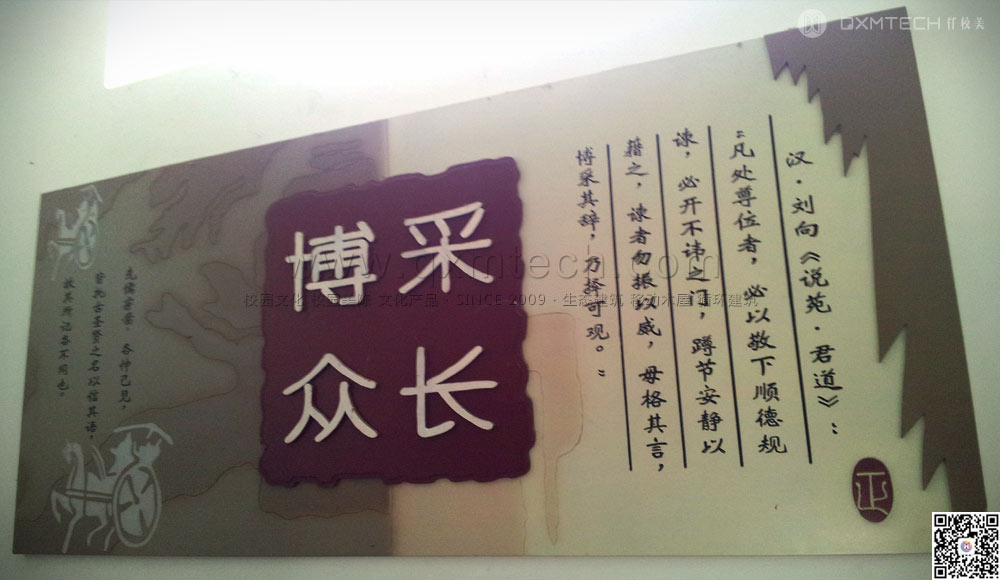 QXMTECH 仟校美
汉·刘向《说苑·君道》:
“凡处尊位者,必以敬下顺德规
谏,必开不讳之门,蹲节安静以
籍之,谏者勿振以威,毋格其言,
博采其辞,乃择可观。”
博采
众长
先儒 各伸己见,
皆托古圣贤之名以信其语,
故其所记各不同也。
正
www.qxmtech.com
校园文化 校园美陈 文化产品 · SINCE 2009 · 生态建筑 移动木屋 循环建筑